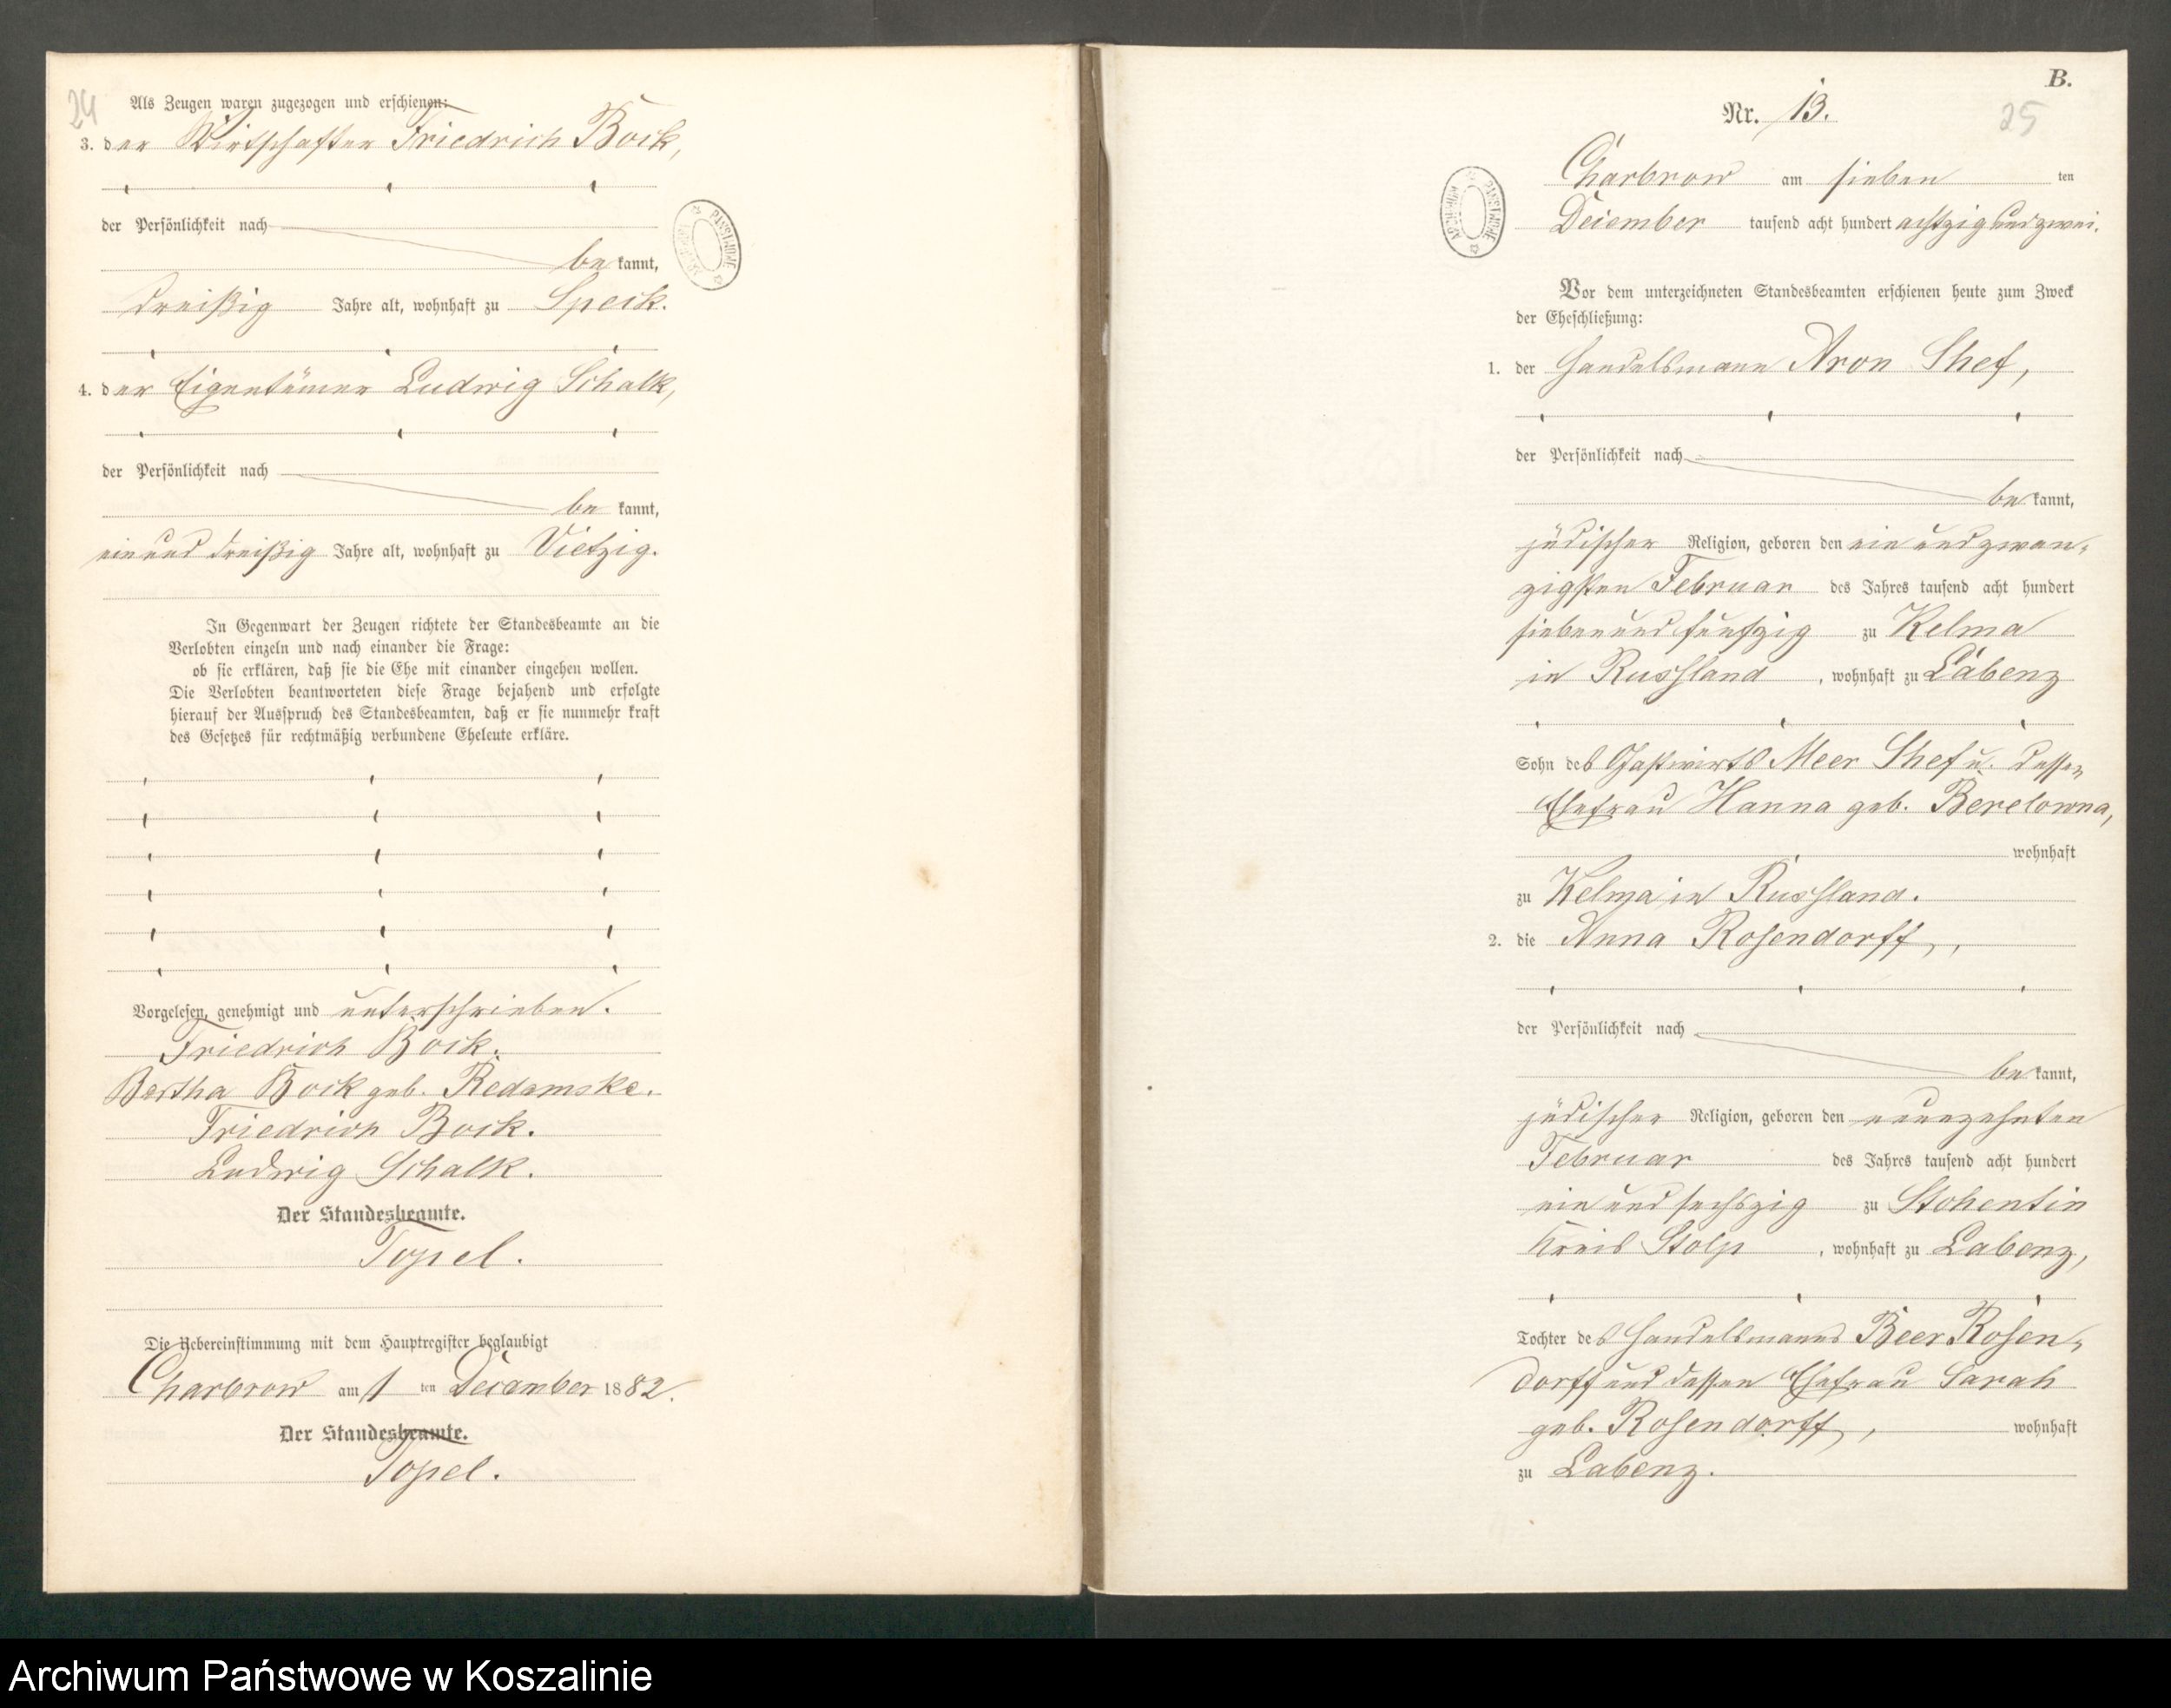 24
Als Zeugen waren zugezogen und erschienen:
3. der Wirtschafter Friedrich Bock,
der Persönlichkeit nach
be kannt,
dreißig Jahre alt, wohnhaft zu Speck.
4. der Eigentümer Ludwig Schalk,
der Persönlichkeit nach
be kannt,
ein und dreißig Jahre alt, wohnhaft zu Vietzig.
In Gegenwart der Zeugen richtete der Standesbeamte an die
Verlobten einzeln und nach einander die Frage:
ob sie erklären, daß sie die Ehe mit einander eingehen wollen.
Die Verlobten beantworteten diese Frage bejahend und erfolgte
hierauf der Ausspruch des Standesbeamten, daß er sie nunmehr kraft
des Gesetzes für rechtmäßig verbundene Eheleute erkläre.
Vorgelesen, genehmigt und unterschrieben.
Friedrich Bock.
Bertha Bock geb. Redamske.
Friedrich Bock.
Ludwig Schalk.
Der Standesbeamte.
Topel.
Die Uebereinstimmung mit dem Hauptregister beglaubigt
Charbrow am 1 ten December 1882.
Der Standesbeamte.
Topel.
ARCHIWUM PAŃSTWOWE
B.
Nr. 13.
25
ARCHIWUM PAŃSTWOWE
Charbrow am sieben ten
December tausend acht hundert achtzig und zwei.
Vor dem unterzeichneten Standesbeamten erschienen heute zum Zweck
der Eheschließung:
1. der Handelsmann Aron Shef,
der Persönlichkeit nach
be kannt,
jüdischer Religion, geboren den ein und zwan-
zigsten Februar des Jahres tausend acht hundert
sieben und fünfzig zu Kelma
in Russland, wohnhaft zu Labenz
Sohn des Gastwirts Meer Shef u. dessen
Ehefrau Hanna geb. Berelowna,
wohnhaft
zu Kelma in Russland.
2. die Anna Rosendorff,
der Persönlichkeit nach
be kannt,
jüdischer Religion, geboren den neunzehnten
Februar des Jahres tausend acht hundert
ein und sechszig zu Stohentin
Kreis Stolp, wohnhaft zu Labenz,
Tochter des Handelsmanns Beer Rosen-
dorff und dessen Ehefrau Sarah
geb. Rosendorff, wohnhaft
zu Labenz.
Archiwum Państwowe w Koszalinie